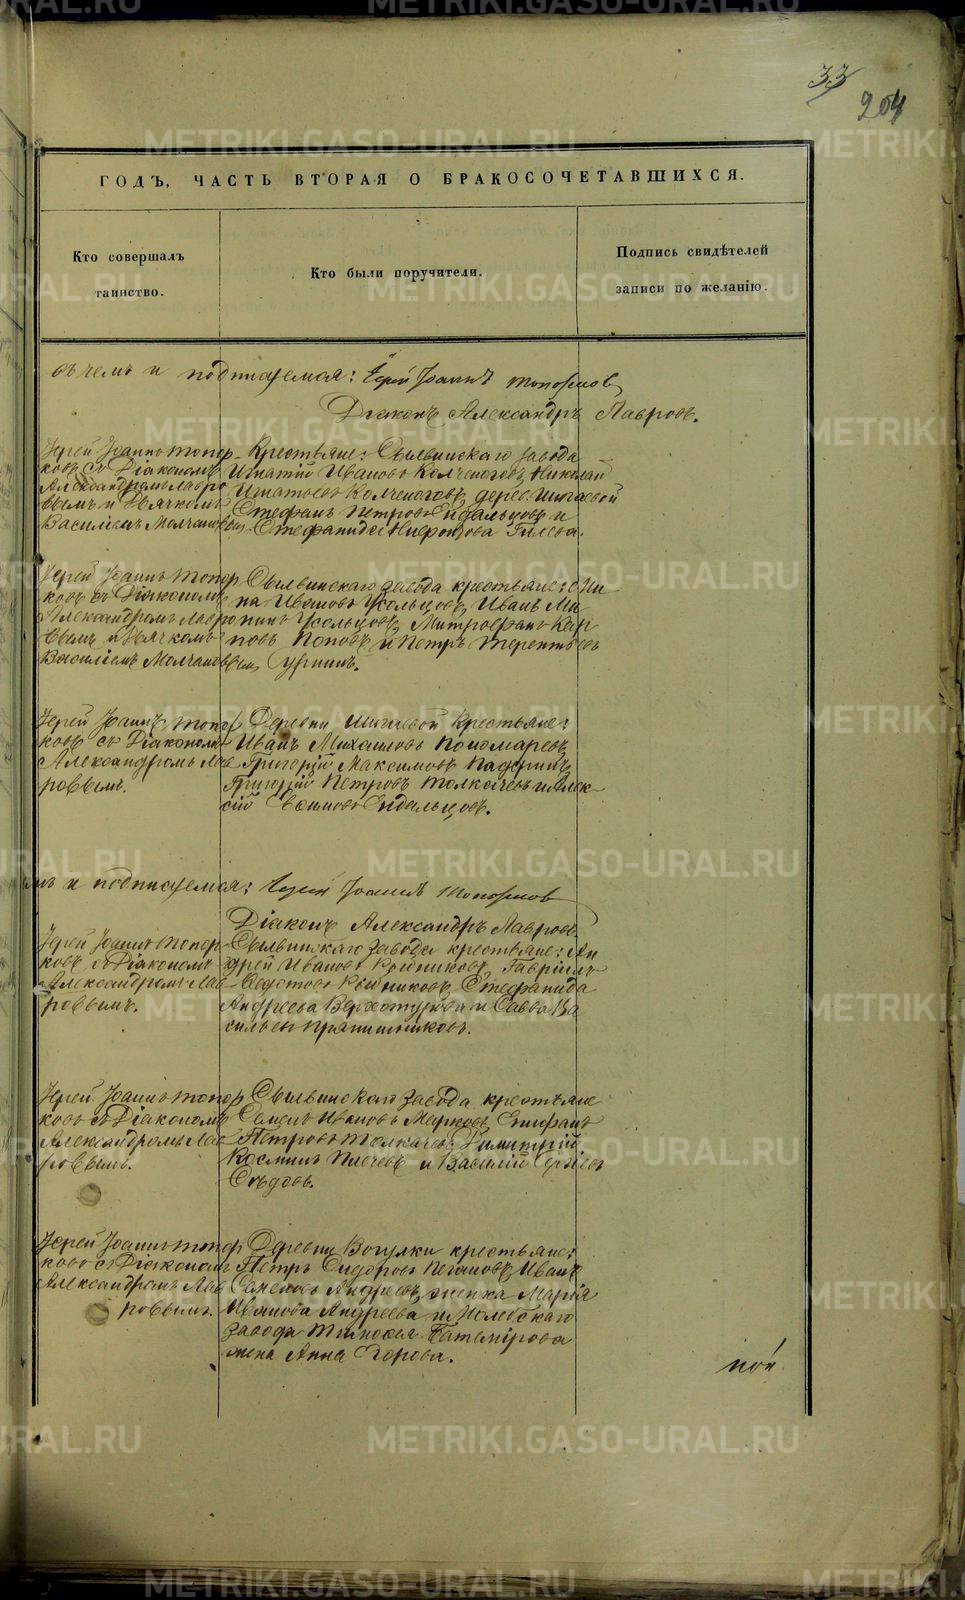 33
204
ГОДЪ, ЧАСТЬ ВТОРАЯ О БРАКОСОЧЕТАВШИХСЯ.
Кто совершалъ
таинство.
Кто были поручители.
Подпись свидѣтелей
записи по желанію.
въ чемъ и подписуемся: Іерей Іоаннъ Топорковъ
Діаконъ Александръ Лавровъ.
Іерей Іоаннъ Топор-
ковъ съ Діакономъ
Александромъ Лавро
вымъ и Дьячкомъ
Василіемъ Молчановымъ
Крестьяне: Сылвинскаго завода
Игнатій Ивановъ Колченоговъ, Николай
Игнатьевъ Колченоговъ, дерев. Шигаевой
Стефанъ Петровъ Ендальцовъ и
Стефанида Гилева.
Іерей Іоаннъ Топор
ковъ съ Діакономъ
Александромъ Лавро
вымъ и Дьячкомъ
Василіемъ Молчановымъ
Сылвинскаго завода крестьяне:
на Ивановъ Усольцовъ, Иванъ Ми-
нинъ Усольцовъ, Митрофанъ Кар-
повъ Поповъ и Петръ Терентьевъ
Іерей Іоаннъ Топор
ковъ съ Діакономъ
Александромъ Лав
ровымъ.
Деревни Шигаевой крестьяне:
Иванъ Михаиловъ Пономаревъ,
Григорій Максимовъ Падеринъ,
Григорій Петровъ Толкачевъ и Алек-
сій Ендальцовъ.
и подписуемся: Іерей Іоаннъ Топорковъ
Діаконъ Александръ Лавровъ
Іерей Іоаннъ Топор-
ковъ съ Діакономъ
Александромъ Лав
ровымъ.
Сылвинскаго завода крестьяне: Ан
дрей Ивановъ Гавріилъ
Ѳедотовъ Стефанида
Андреева Верхотурова и Савва Ва
сильевъ Прянишниковъ.
Іерей Іоаннъ Топор
ковъ съ Діакономъ
Александромъ Лав
ровымъ.
Сылвинскаго завода крестьяне
Семенъ Ивановъ Марковъ, Епифанъ
Петровъ Толкачевъ, Димитрій
Косминъ Плечевъ и Василій Сергѣевъ
Сѣдовъ.
Іерей Іоаннъ Топор
ковъ съ Діакономъ
Александромъ Лав
ровымъ.
Деревни Вогулки крестьяне:
Петръ Сидоровъ Пегановъ, Иванъ
Савельевъ Андреевъ, женка Марія
Иванова Андреева и Молебскаго
завода
жена Анна Егорова.
METRIKI.GASO-URAL.RU